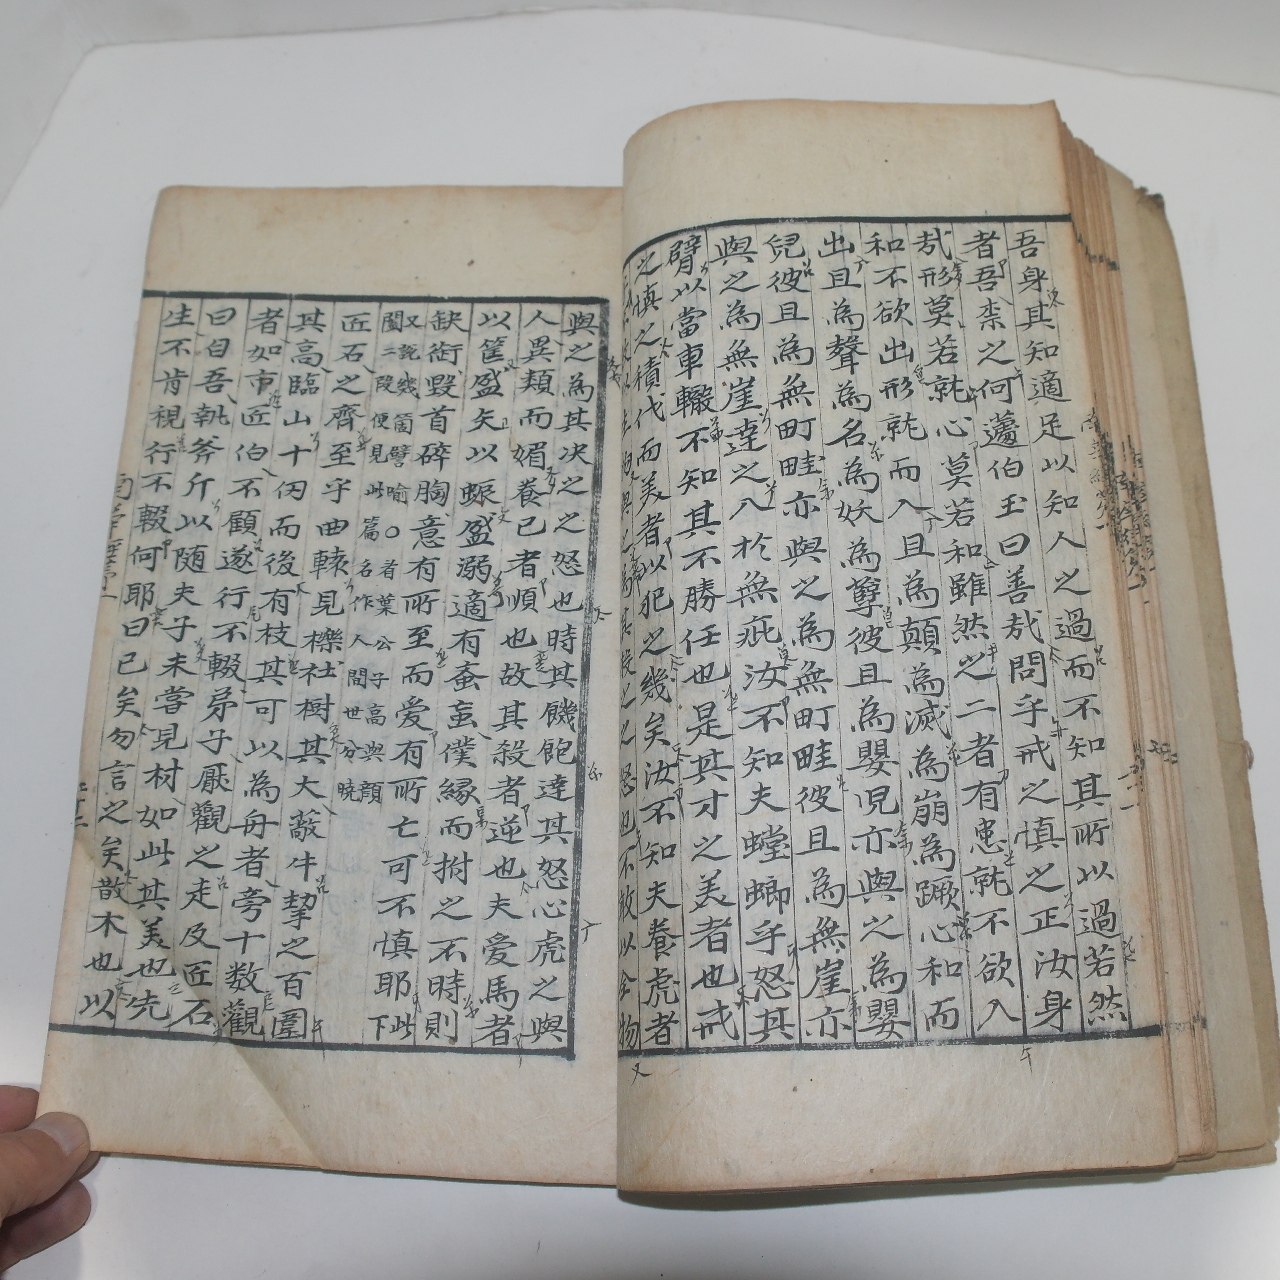 吾身其知適足以知人之過而不知其所以過若然
者吾柰之何蘧伯玉曰善㢤問乎戒之慎之正汝身
㢤形莫若就心莫若和雖然之二者有患就不欲入
和不欲出形就而入且為顛為滅為崩為蹶心和而
出且為聲為名為妖為孽彼且為嬰児亦與之為嬰
兒彼且為無町畦亦與之為無町畦彼且為無崖亦
與之為無崖達之入於無疵汝不知夫螳螂乎怒其
臂以當車轍不知其不勝任也是其才之美者也戒
之慎之積伐而美者以犯之幾矣汝不知夫養虎者
之怒也不敢以全物
與之為其决之之怒也時其饑飽達其怒心虎之與
人異類而媚養已者順也故其殺者逆也夫愛馬者
以筐盛矢以蜄盛溺適有蚉䖟僕縁而拊之不時則
缺銜毀首碎胸意有所至而愛有所亡可不慎耶此下
又說幾箇譬喻○者葉公子高與顔
闔二段便見此篇名作人間世分曉
匠石之齊至乎曲轅見櫟社樹其大蔽牛挈之百圍
其高臨山十仞而後有枝其可以為舟者旁十數觀
者如市匠伯不顧遂行不輟弟子厭觀之走及匠石
曰自吾執斧斤以随夫子未嘗見材如此其美也先
生不肯視行不輟何耶曰已矣勿言之矣散木也以